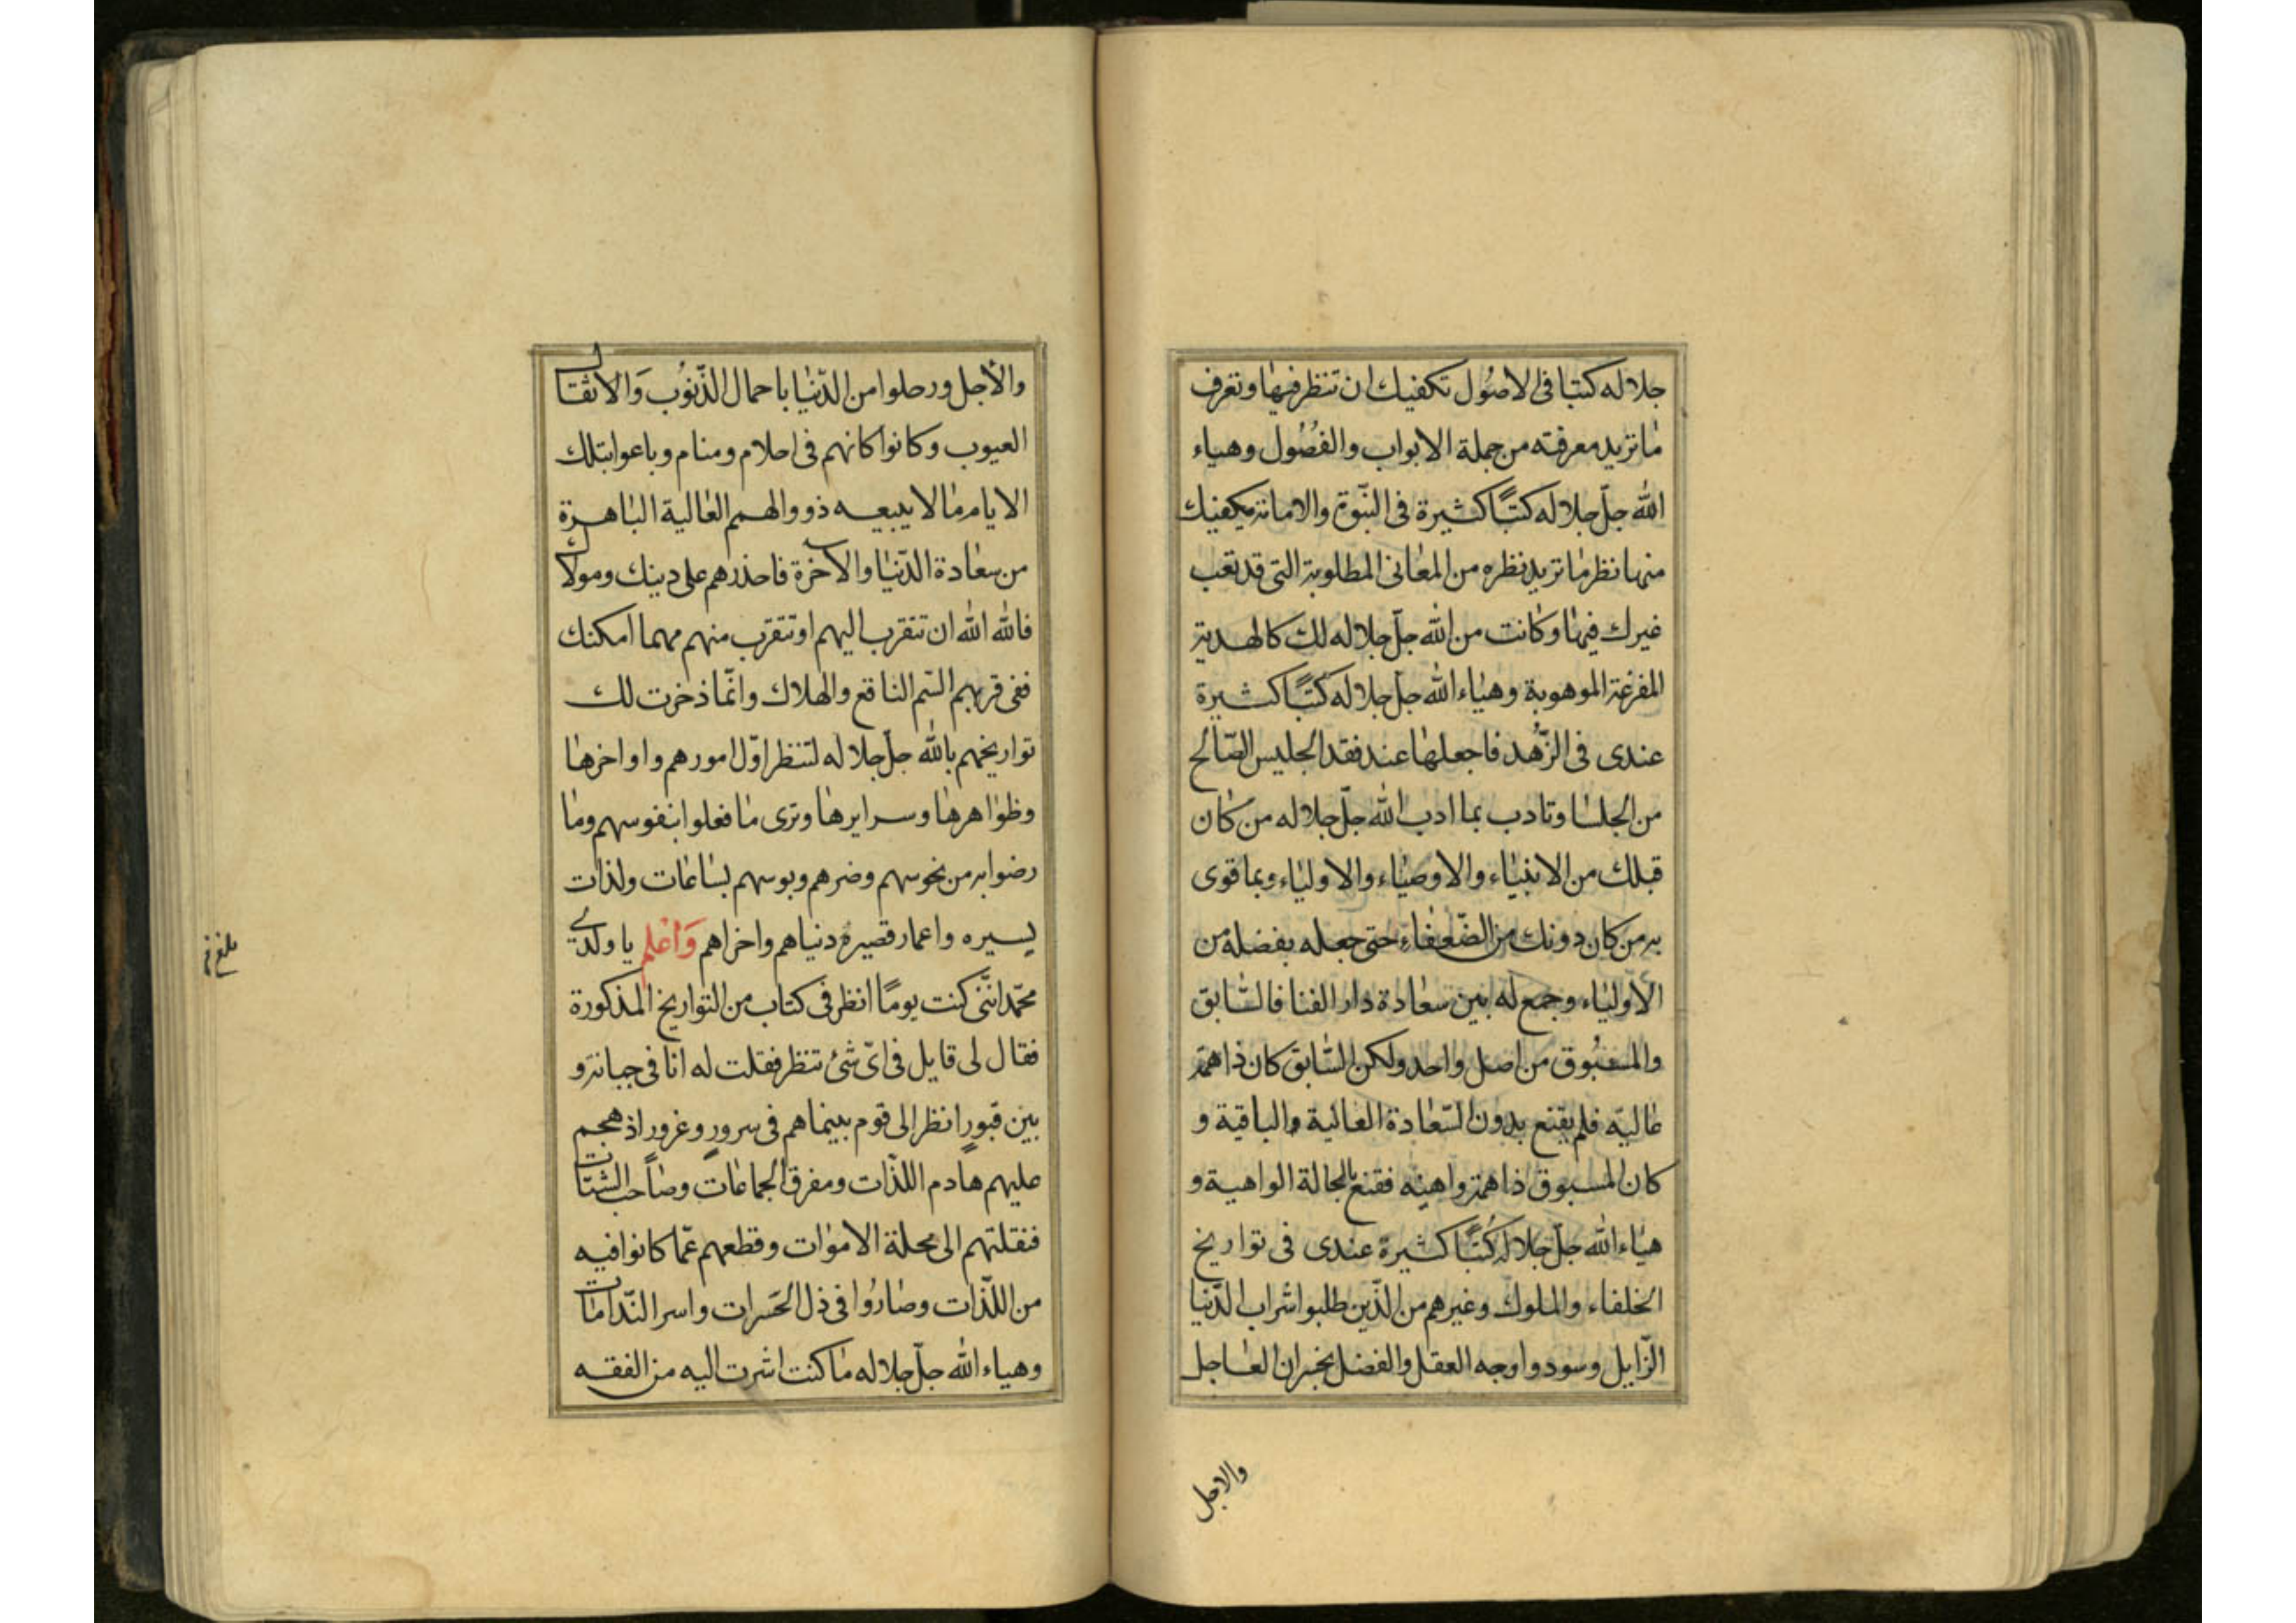 جلاله كتبا فى الاصُول تكفيك ان تنظر فيها وتعرف
ما تريد معرفته من جملة الابواب والفصُول وهياء
الله جلّ جلاله كتبًا كثيرة فى النبّوة والامامة يكفيك
منها نظر ما تريد نظره من المعانى المطلوبة التى قد تعب
غيرك فيها وكانت من الله جلّ جلاله لك كالهدية
المفرغة الموهوبة وهياء الله جلّ جلاله كتبًا كثيرة
عندى فى الزّهد فاجعلها عند فقد الجليس الصّالح
من الجلسا وتادب بما ادب الله جلّ جلاله من كان
قبلك من الانبياء والاوصياء والاولياء وبما قوى
به من كان دونك من الضّعفاء حتى جعله بفضله من
الأولياء وجمع له بين سعادة دار الفنا فالسّابق
والمسبُوق من اصل واحد ولكن السّابق كان ذا همة
عالية فلم يقنع بدون السّعادة العالية والباقية و
كان المسبوق ذا همة واهيه فقنع بالحالة الواهية و
هياء الله جلّ جلاله كُتبًا كثيرة عندى فى تواريخ
الخلفاء والملوك وغيرهم من الّذين طلبوا شراب الدّنيا
الزّايل وسودوا وجه العقل والفضل بخسران العاجل
والاجل
والأجل ورحلوا من الدّنيا باحمال الذّنوُب وَالاثقال
العيوب وكانوا كانهم فى احلام ومنام وباعوا بتلك
الايام ما لا يبيعه ذووا الهمم العالية الباهرة
من سعادة الدّنيا والآخرة فاحذرهم على دينك ومولاك
فالله الله ان تتقرب اليهم او تتقرّب منهم مهما امكنك
ففى قربهم السّم الناقع والهلاك وانّما ذخرت لك
تواريخهم بالله جلّ جلاله لتنظر اوّل امورهم واواخرها
وظواهرها وسرايرها وترى ما فعلوا بنفوسهم وما
رضوا به من نحوسهم وضرهم وبوسهم بساعات ولذات
يسيره واعمار قصيره دنياهم واخراهم وَاعلم يا ولدي
محمّد انّنى كنت يومًا انظر فى كتاب من التواريخ المذكورة
فقال لى قايل فى اىّ شئ تنظر فقلت له انا فى جبانة و
بين قبورٍ انظر الى قوم بينما هم فى سرورٍ وغرور اذ هجم
عليهم هادم اللذّات ومفرق الجماعات وصاحب الشتات
فنقلتهم الى محلة الاموات وقطعهم عمّا كانوا فيه
من اللذّات وصارُوا فى ذل الحَسَرات واسر النّدامات
وهياء الله جلّ جلاله ما كنت اشرت اليه من الفقه